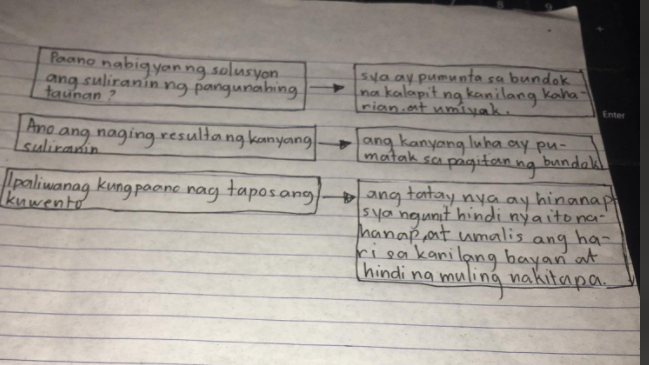 Paano nabigyan ng solusyon
ang suliranin ng pangunahing
taunan?
sya ay pumunta sa bundok
na kalapit ng kanilang kaha-
rian, at umiyak.
Ano ang naging resulta ng kanyang
suliranin
ang kanyang luha ay pu-
matak sa pagitan ng bundok
Ipaliwanag kung paano nag tapos ang
kuwento
ang tatay nya ay hinanap
sya ngunit hindi nya ito na-
hanap, at umalis ang ha-
ri sa kanilang bayan at
hindi ng muling nakita pa.
Enter